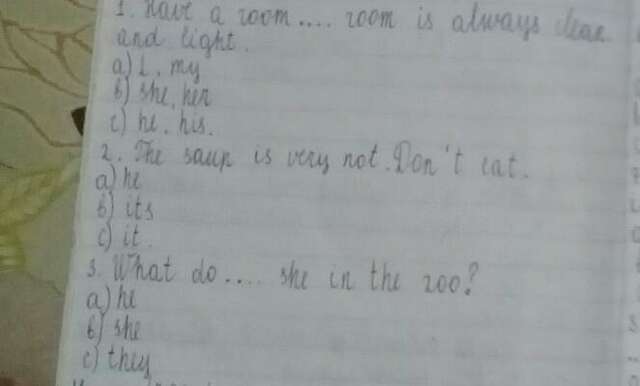 1. Have a room .... room is always clean
and light.
a) I, my
b) she, her
c) he, his.
2. The soup is very hot. Don't eat.
a) he
b) its
c) it.
3. What do .... she in the zoo?
a) he
b) she
c) they